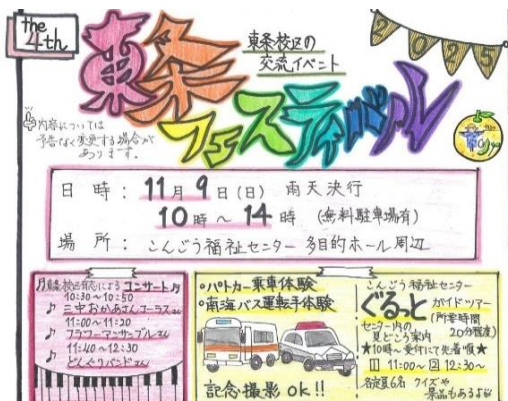 the
4th
東条校区の
交流イベント
2025
東条
フェスティバル
内容については
予告なく変更する場合が
あります。
日時：11月9日(日) 雨天決行
10時～14時 (無料駐車場有)
場所：こんごう福祉センター 多目的ホール周辺
東条校区有志による コンサート
10:30～10:50
♪ 三中おかあさんコーラスさん
11:00～11:20
♪ フラワーアンサンブルさん
11:40～12:30
♪ どんぐりバンドさん
○パトカー乗車体験
○南海バス運転手体験
記念撮影 OK!!
こんごう福祉センター
ぐるっと ガイドツアー
(所要時間
20分程度)
センター内の
見どころ案内
★10時～受付にて先着順★
1 11:00～ 2 12:30～
各定員6名 クイズや
景品もあるよ